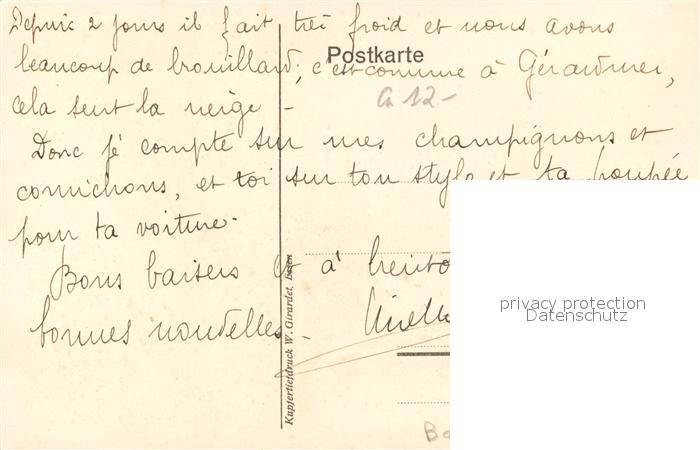 Depuis 2 jours il fait très froid et nous avons
Postkarte
beaucoup de brouillard, c'est comme à Gérardmer,
cela sent la neige -
G 12-
Donc je compte sur mes champignons et
cornichons, et toi sur ton stylo et ta poupée
pour ta voiture.
Bons baisers et à
bonnes nouvelles -
Kupfertiefdruck W. Girardet, Essen
privacy protection
Datenschutz